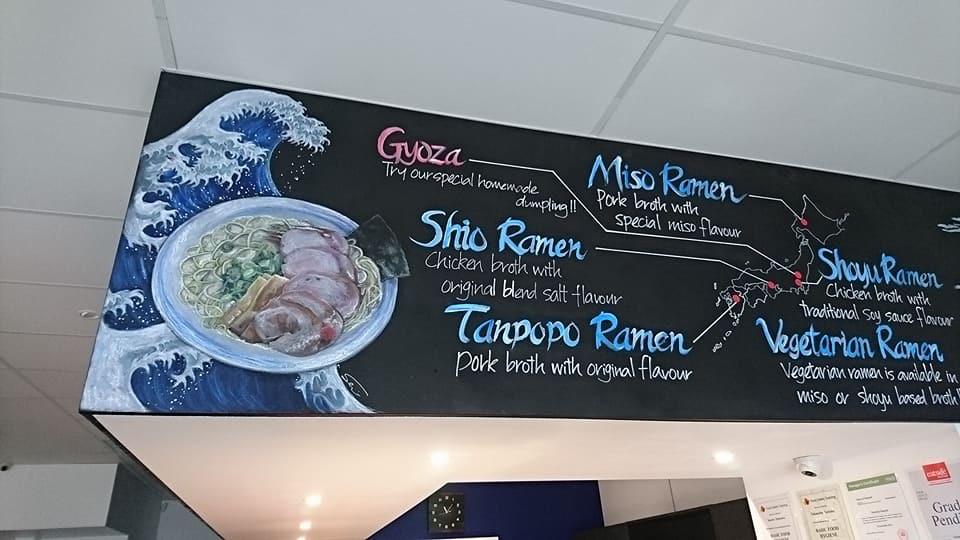 Gyoza
Try our special homemade
dumpling!!
Miso Ramen
Pork broth with
special miso flavour
Shio Ramen
Chicken broth with
original blend salt flavour
Shoyu Ramen
Chicken broth with
traditional soy sauce flavour
Tanpopo Ramen
pork broth with original flavour
Vegetarian Ramen
Vegetarian ramen is available in
miso or shoyu based broth!
BASIC FOOD
HYGIENE
BASIC FOOD
Grad
Pendi